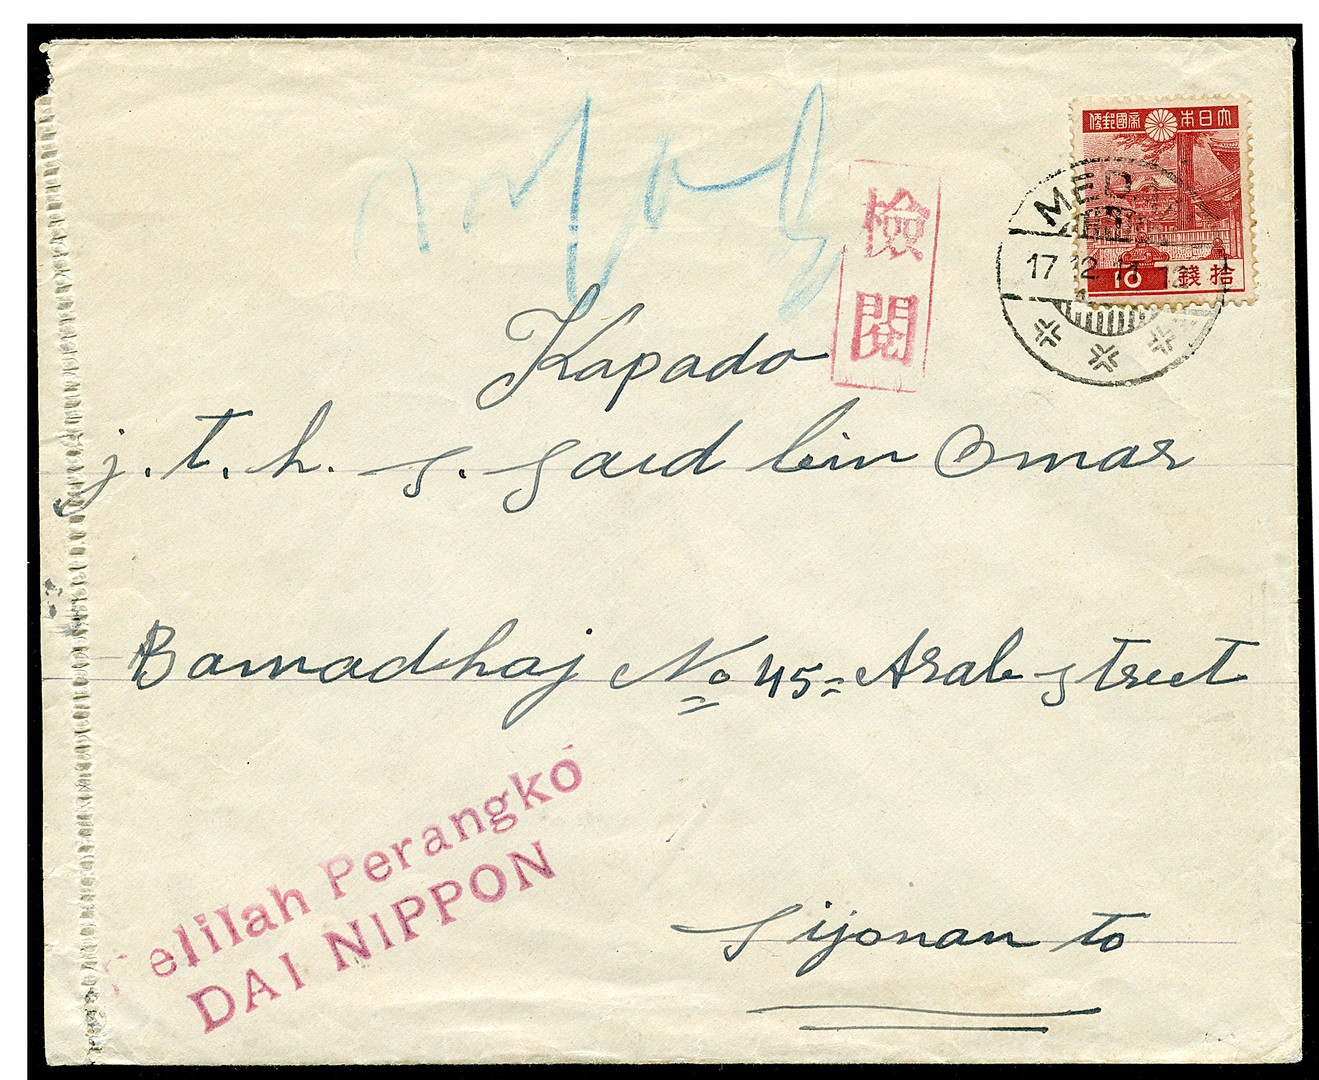 大日本帝國郵便
MED
17 12
10 拾錢
檢閱
Kapado
j. t. h. s. Said bin Omar
Bamadhaj No 45 = Arab street
Sijonan to
elilah Perangko
DAI NIPPON